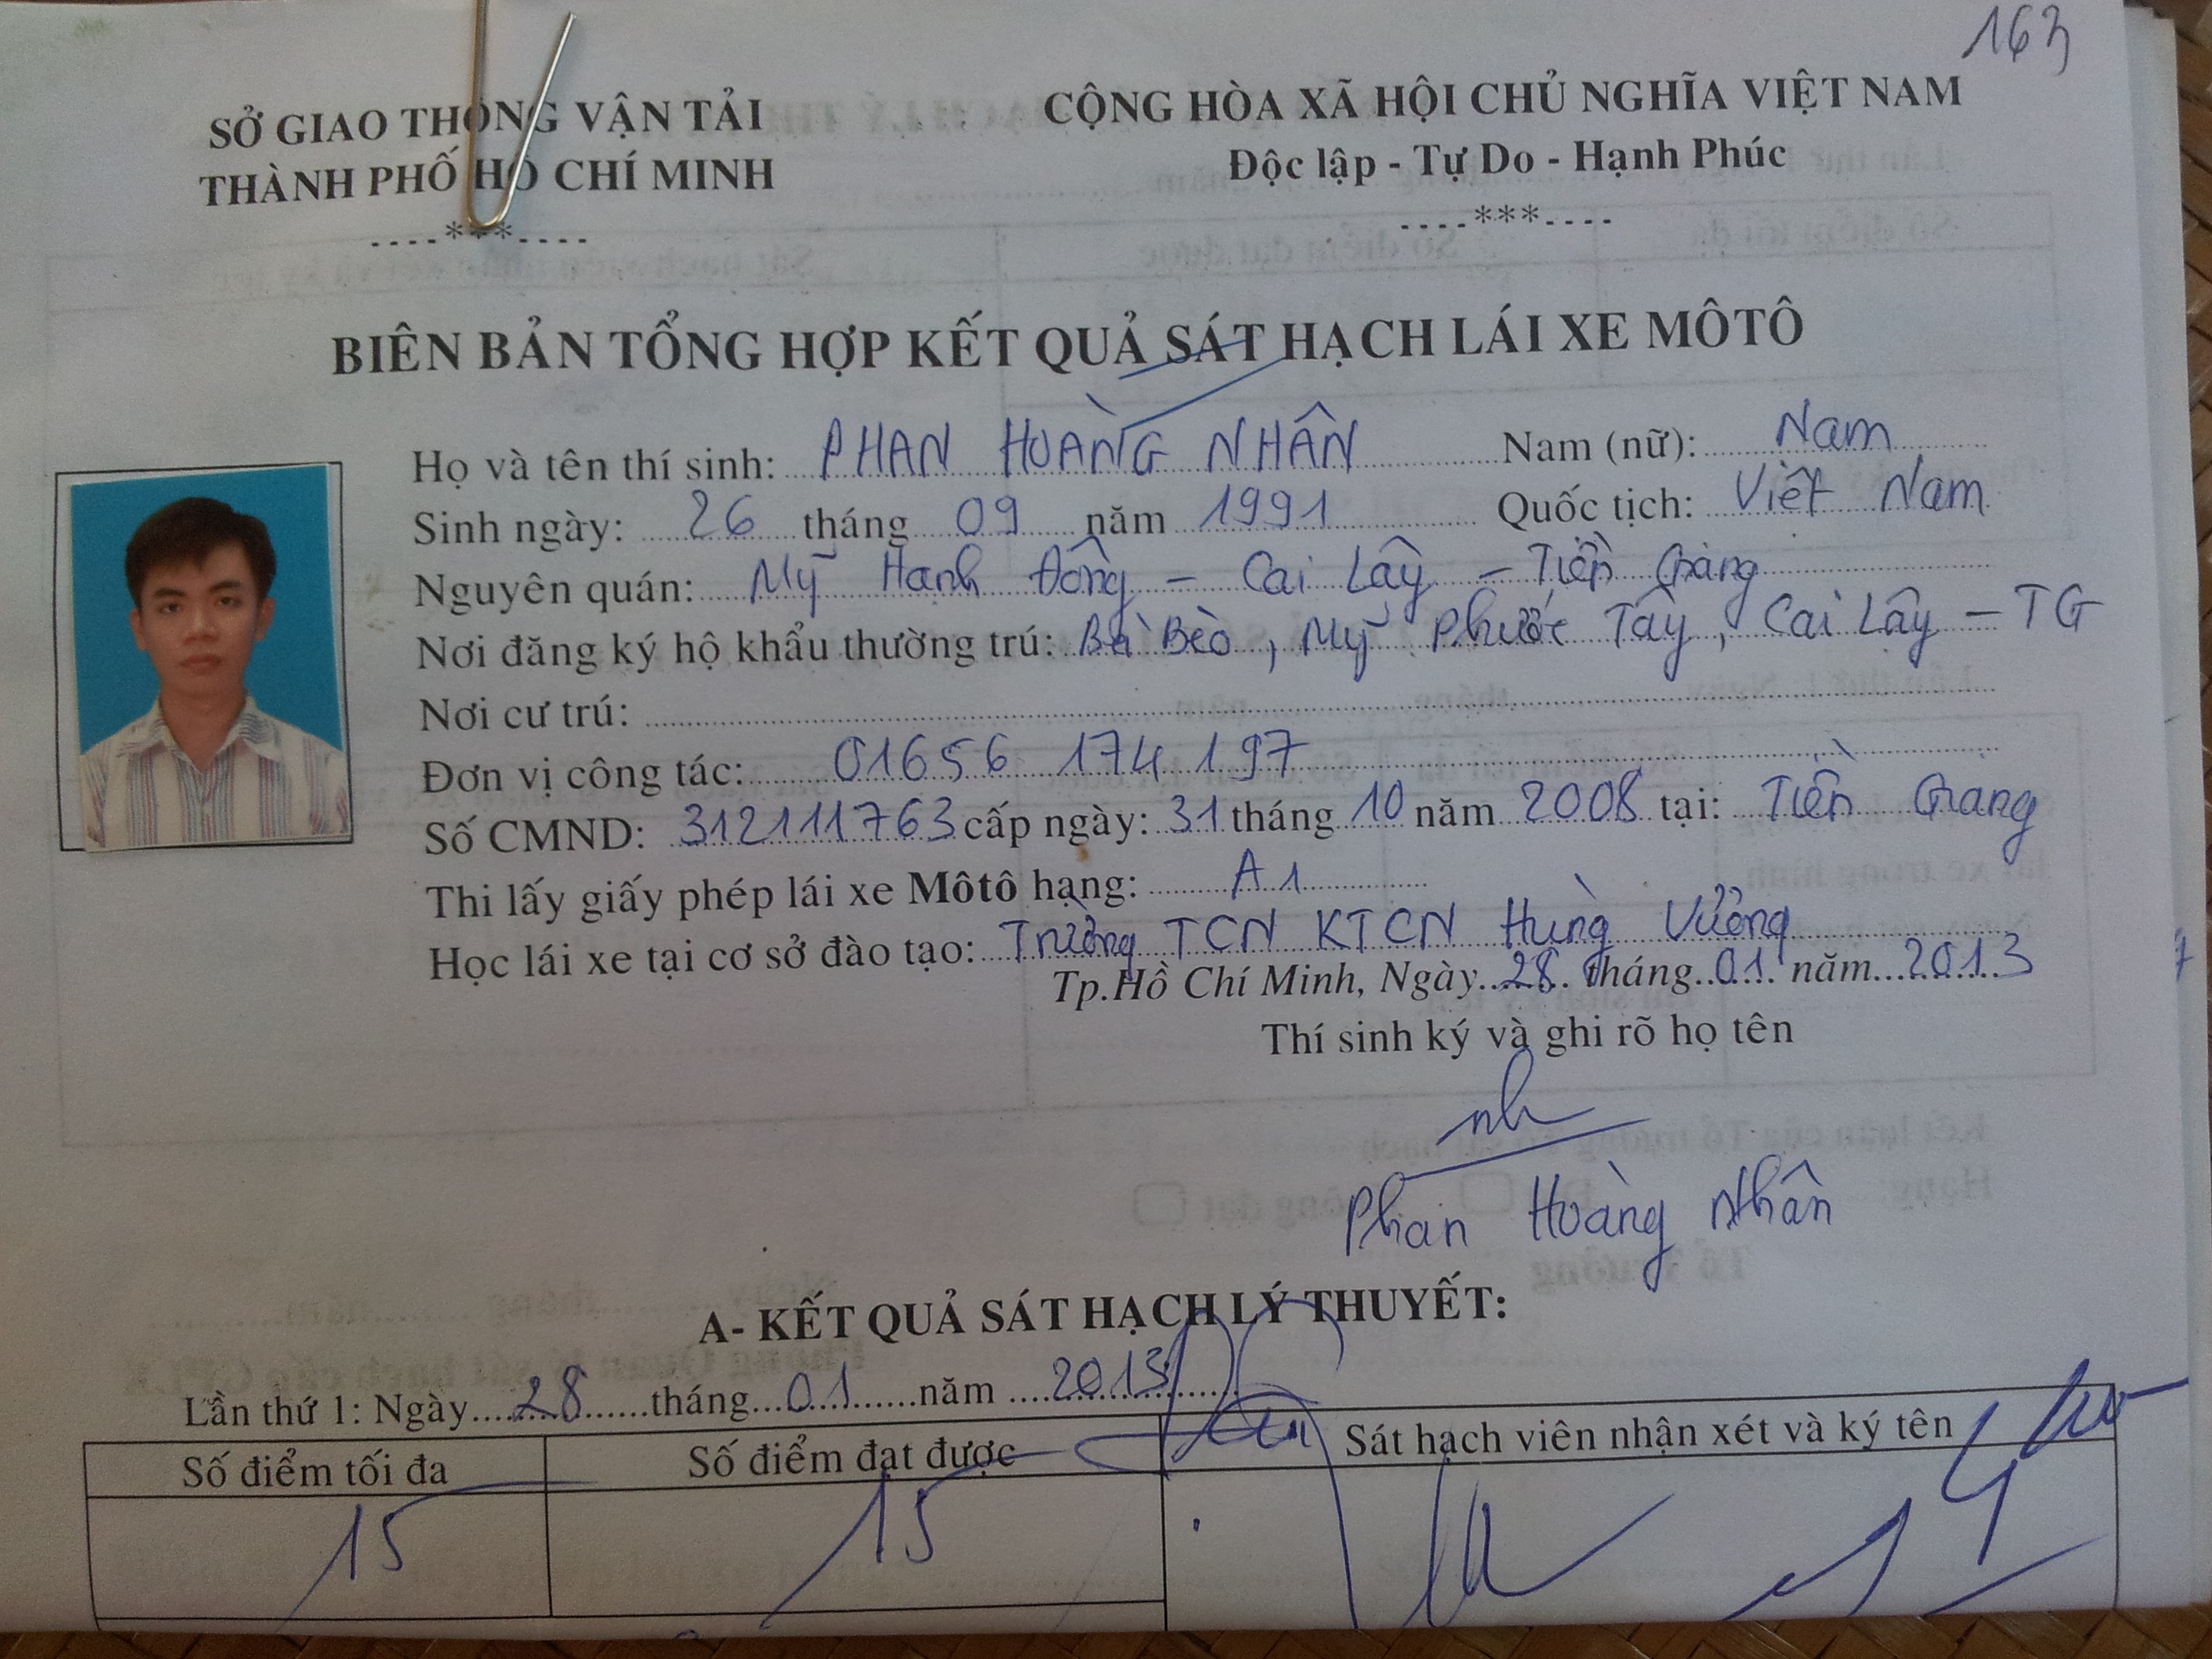 163
SỞ GIAO THÔNG VẬN TẢI
THÀNH PHỐ HỒ CHÍ MINH
----***----
CỘNG HÒA XÃ HỘI CHỦ NGHĨA VIỆT NAM
Độc lập - Tự Do - Hạnh Phúc
----***----
BIÊN BẢN TỔNG HỢP KẾT QUẢ SÁT HẠCH LÁI XE MÔTÔ
Họ và tên thí sinh: PHAN HOÀNG NHÂN Nam (nữ): Nam
Sinh ngày: 26 tháng 09 năm 1991 Quốc tịch: Việt Nam
Nguyên quán: Mỹ Hạnh Đông - Cai Lậy - Tiền Giang
Nơi đăng ký hộ khẩu thường trú: Bà Bèo, Mỹ Phước Tây, Cai Lậy - TG
Nơi cư trú:
Đơn vị công tác: 01656 174 197
Số CMND: 312111763 cấp ngày: 31 tháng 10 năm 2008 tại: Tiền Giang
Thi lấy giấy phép lái xe Môtô hạng: A1
Học lái xe tại cơ sở đào tạo: Trường TCN KTCN Hùng Vương
Tp.Hồ Chí Minh, Ngày 28 tháng 01 năm 2013
Thí sinh ký và ghi rõ họ tên
Phan Hoàng Nhân
A- KẾT QUẢ SÁT HẠCH LÝ THUYẾT:
Lần thứ 1: Ngày 28 tháng 01 năm 2013
Số điểm tối đa Số điểm đạt được Sát hạch viên nhận xét và ký tên
15 15